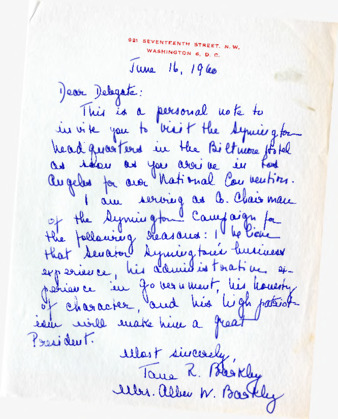 921 SEVENTEENTH STREET, N.W.
WASHINGTON 6, D.C.
June 16, 1960
Dear Delegate:
This is a personal note to
invite you to visit the Symington
headquarters in the Biltmore Hotel
as soon as you arrive in Los
Angeles for our National Convention.
I am serving as Co. Chairman
of the Symington Campaign for
the following reasons: I believe
that Senator Symington's business
experience, his administrative ex-
perience in government, his honesty
of character, and his high patriot-
ism will make him a great
President.
Most sincerely,
Jane R. Barkley
Mrs. Alben W. Barkley